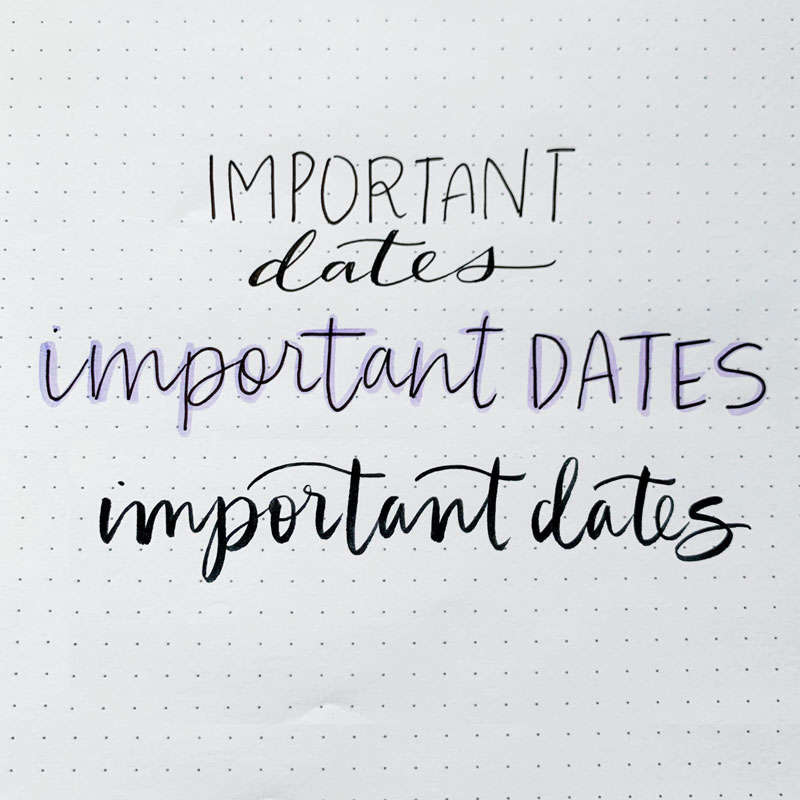 IMPORTANT
dates
important DATES
important dates